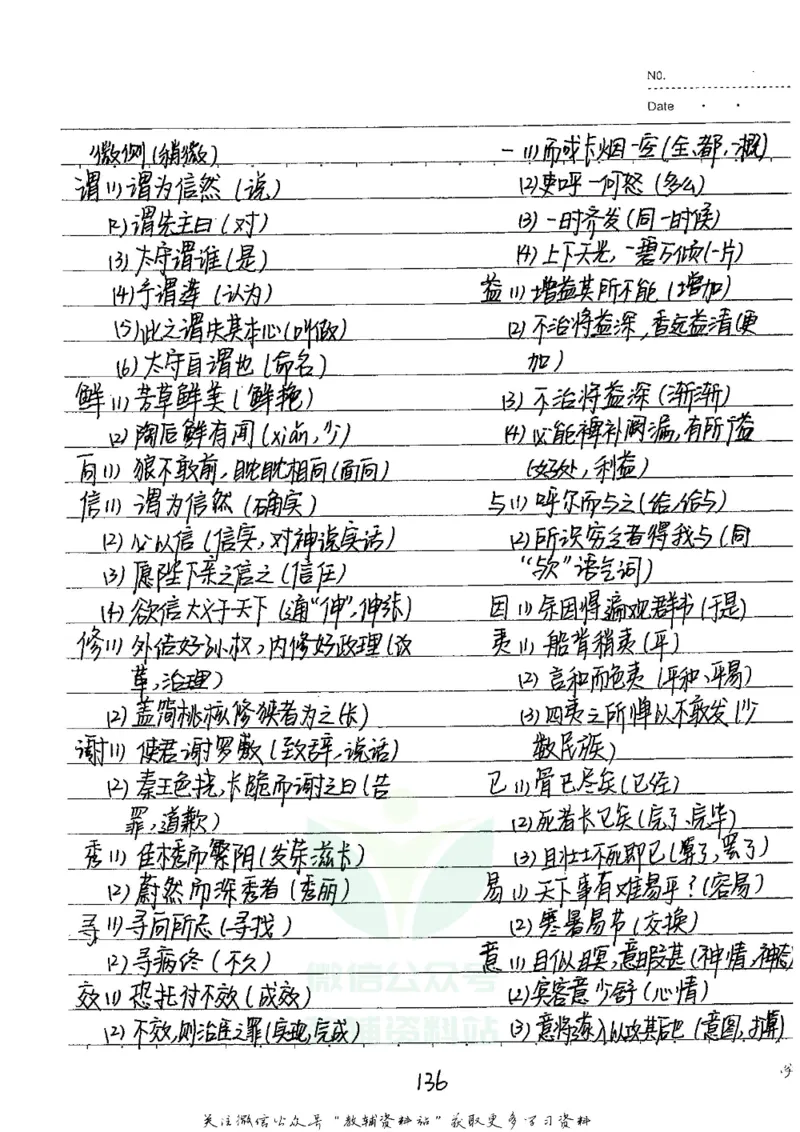 No.
Date
微侧(稍微)
谓(1)谓为信然(说)
(2)谓先主曰(对)
(3)太守谓谁(是)
(4)予谓莲(认为)
(5)此之谓失其本心(叫做)
(6)太守自谓也(命名)
鲜(1)芳草鲜美(鲜艳)
(2)陶后鲜有闻(xiǎn,少)
向(1)狼不敢前,眈眈相向(面向)
信(1)谓为信然(确实)
(2)必以信(信实,对神说实话)
(3)愿陛下亲之信之(信任)
(4)欲信大义于天下(通“伸”,伸张)
修(1)外结好孙权,内修好政理(改
革,治理)
(2)盖简桃核修狭者为之(长)
谢(1)使君谢罗敷(致辞、说话)
(2)秦王色挠,长跪而谢之曰(告
罪,道歉)
秀(1)佳木秀而繁阴(发荣滋长)
(2)蔚然而深秀者(秀丽)
寻(1)寻向所志(寻找)
(2)寻病终(不久)
效(1)恐托付不效(成效)
(2)不效,则治臣之罪(实现,完成)
一(1)而或长烟一空(全、都、一概)
(2)吏呼一何怒(多么)
(3)一时齐发(同一时候)
(4)上下天光,一碧万倾(一片)
益(1)增益其所不能(增加)
(2)不治将益深,香远益清(更
加)
(3)不治将益深(渐渐)
(4)必能裨补阙漏,有所广益
(好处,利益)
与(1)呼尔而与之(给,给与)
(2)所识穷乏者得我与(同
“欤”语气词)
因(1)余因得遍观群书(于是)
夷(1)船背稍夷(平)
(2)言和而色夷(平和、平易)
(3)四夷之所惮以不敢发(少
数民族)
已(1)骨已尽矣(已经)
(2)死者长已矣(完了、完毕)
(3)且壮士不死即已(算了,罢了)
易(1)天下事有难易乎?(容易)
(2)寒暑易节(交换)
意(1)目似瞑,意暇甚(神情,神态)
(2)宾客意少舒(心情)
(3)意将遂入以攻其后也(意图,打算)
136
微信公众号
教辅资料站
关注微信公众号“教辅资料站”获取更多学习资料